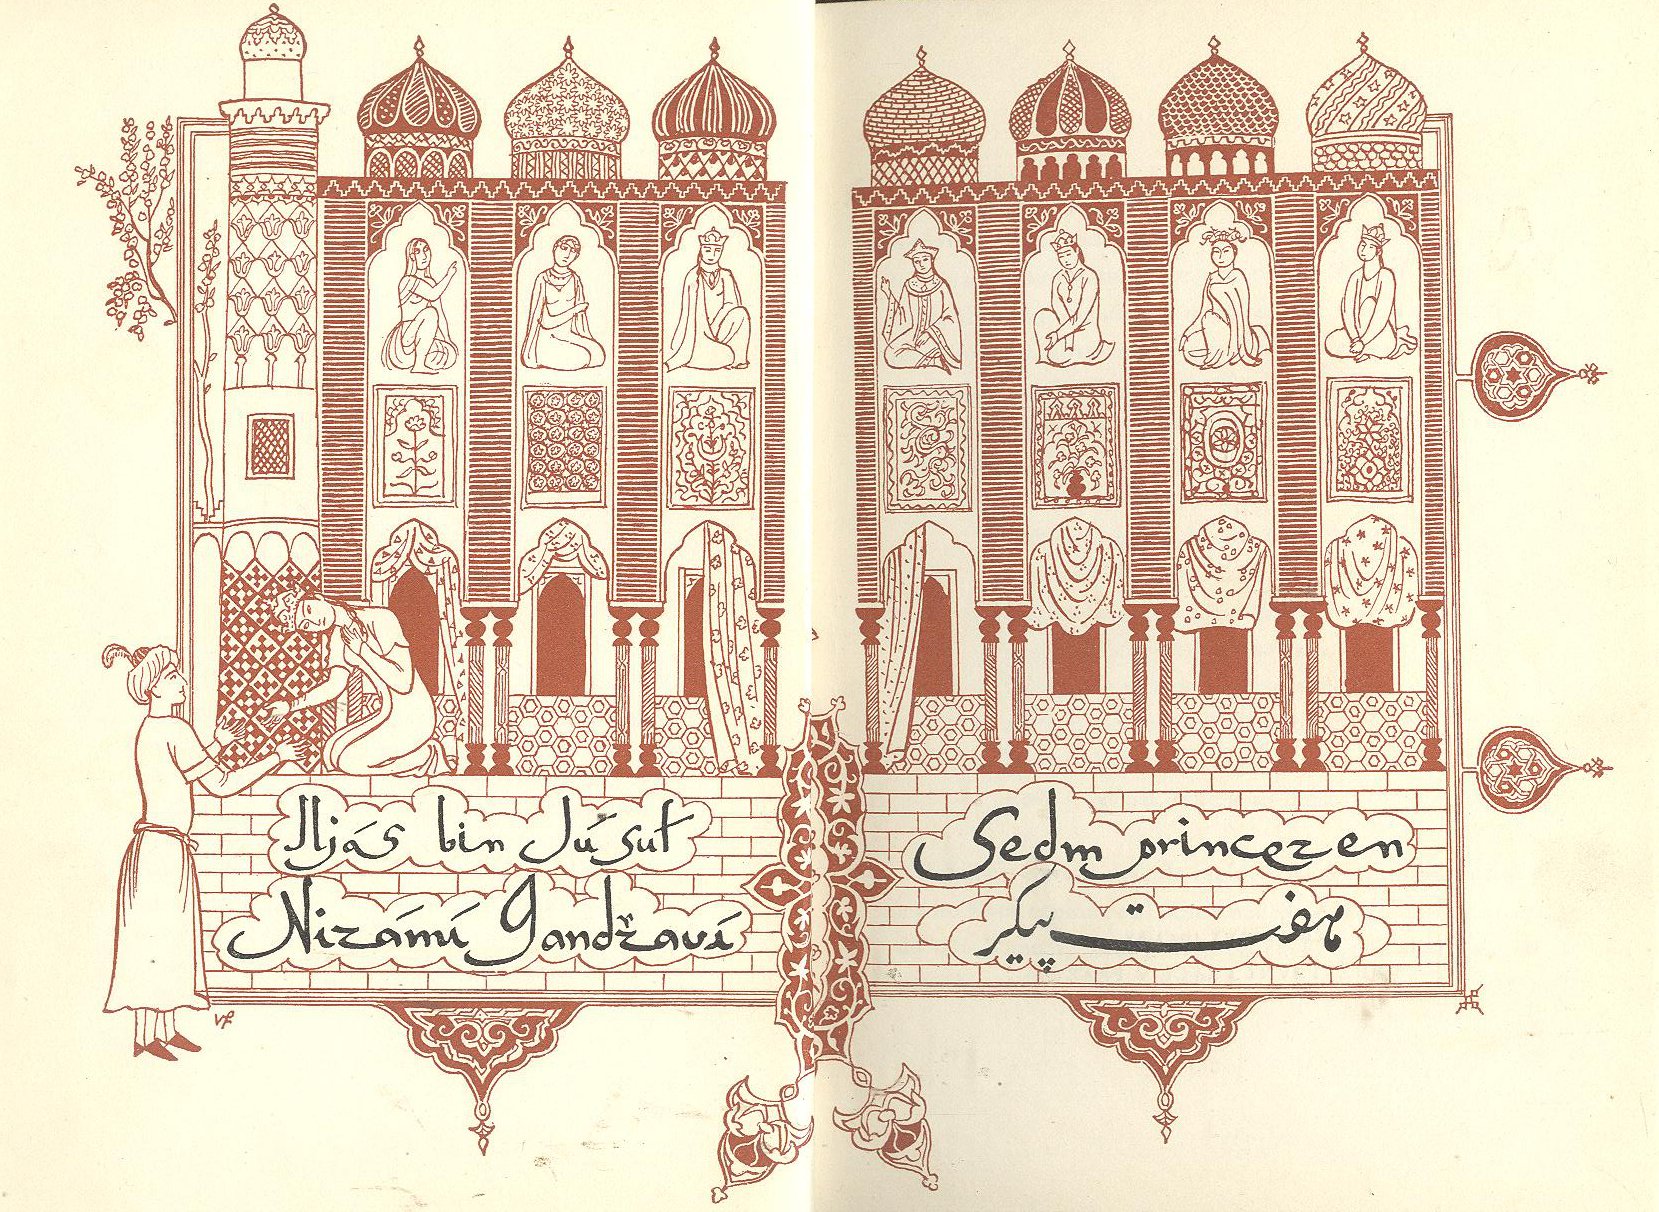 Iljás bin Júsuf
Nizámí Gandžaví
Sedm princezen
هفت پیکر
VF